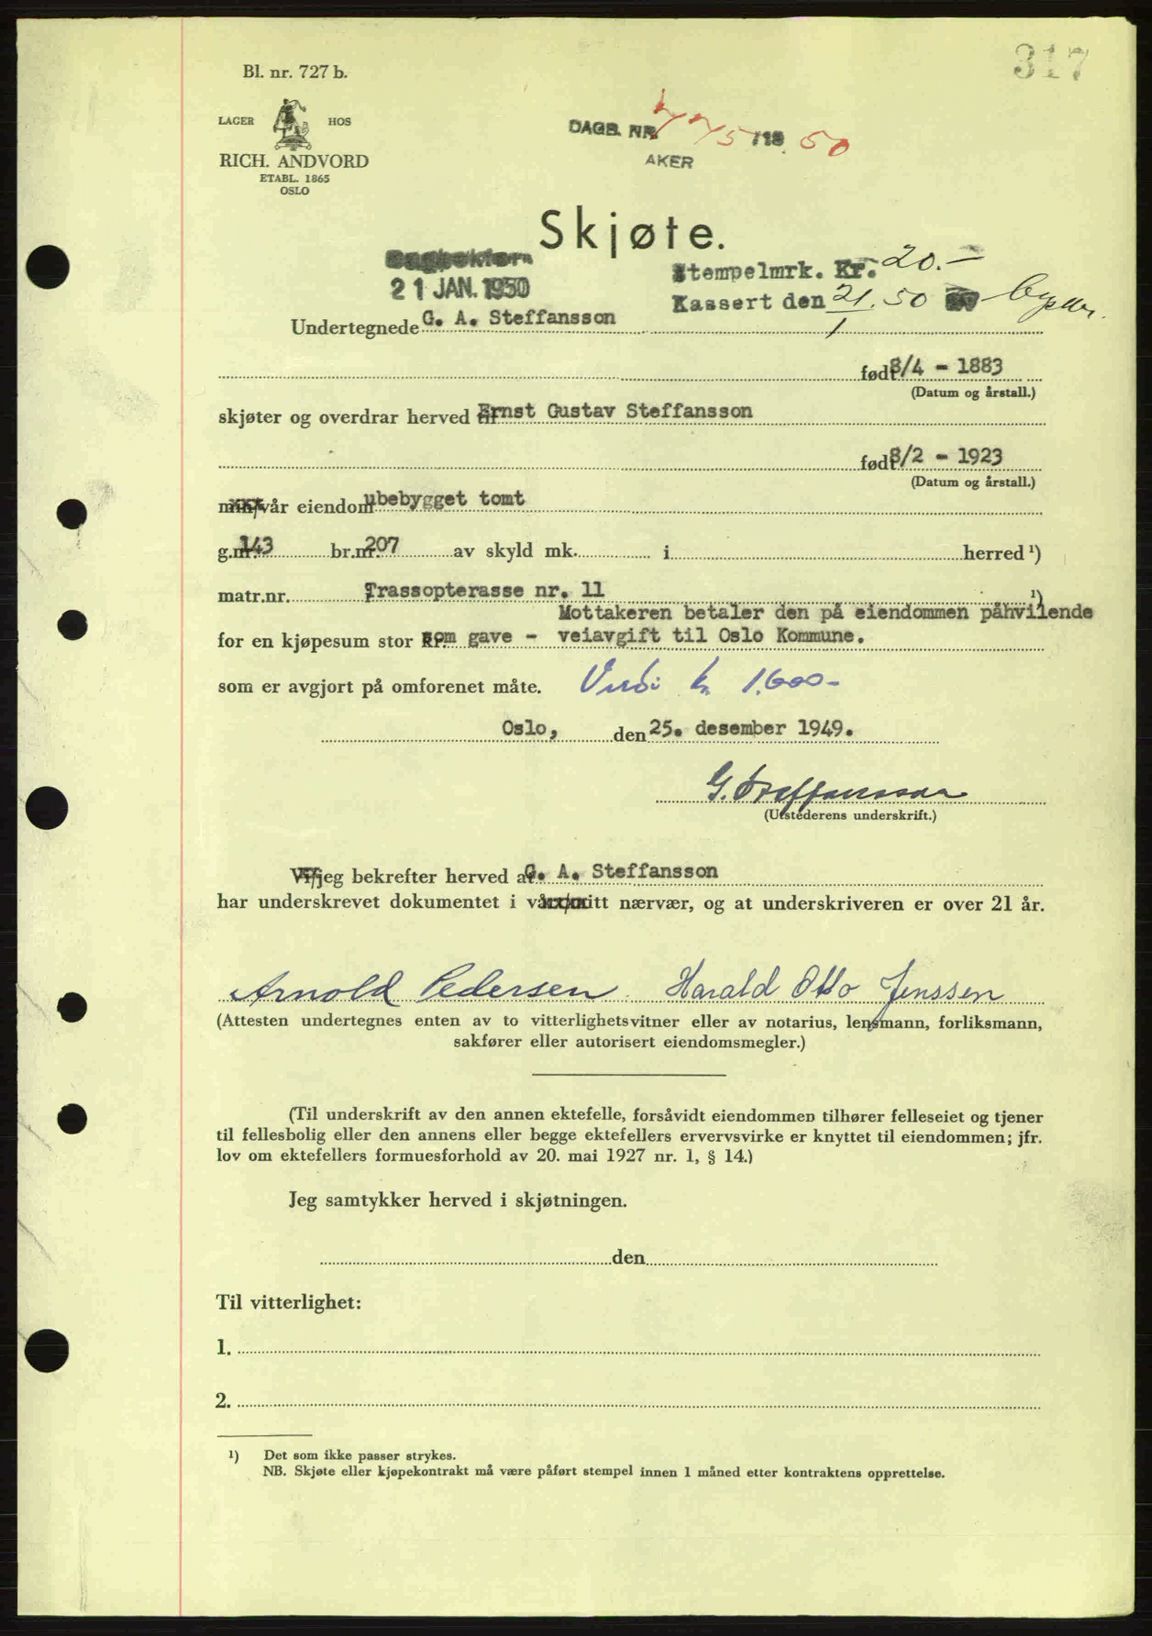 317
Bl. nr. 727 b.
LAGER HOS
RICH. ANDVORD
ETABL. 1865
OSLO
DAGB. NR. 775/19 50
AKER
Skjøte.
Dagbokført
21 JAN. 1950
Stempelmrk. Kr. 20.-
Kassert den 21/1 50
Undertegnede G. A. Steffansson
født 8/4 - 1883
(Datum og årstall.)
skjøter og overdrar herved til Ernst Gustav Steffansson
født 8/2 - 1923
(Datum og årstall.)
min/vår eiendom ubebygget tomt
g.nr. 143 br.nr. 207 av skyld mk. i herred ¹)
matr.nr. Trassopterasse nr. 11 ¹)
Mottakeren betaler den på eiendommen påhvilende
for en kjøpesum stor kr. som gave - veiavgift til Oslo Kommune.
som er avgjort på omforenet måte. Verdi kr 1.600-
Oslo, den 25. desember 1949.
G. Steffansson
(Utstederens underskrift.)
Vi/jeg bekrefter herved at G. A. Steffansson
har underskrevet dokumentet i vårt/mitt nærvær, og at underskriveren er over 21 år.
Arnold Pedersen Harald Otto Jenssen
(Attesten undertegnes enten av to vitterlighetsvitner eller av notarius, lensmann, forliksmann,
sakfører eller autorisert eiendomsmegler.)
(Til underskrift av den annen ektefelle, forsåvidt eiendommen tilhører felleseiet og tjener
til fellesbolig eller den annens eller begge ektefellers ervervsvirke er knyttet til eiendommen; jfr.
lov om ektefellers formuesforhold av 20. mai 1927 nr. 1, § 14.)
Jeg samtykker herved i skjøtningen.
den
Til vitterlighet:
1.
2.
¹) Det som ikke passer strykes.
NB. Skjøte eller kjøpekontrakt må være påført stempel innen 1 måned etter kontraktens opprettelse.